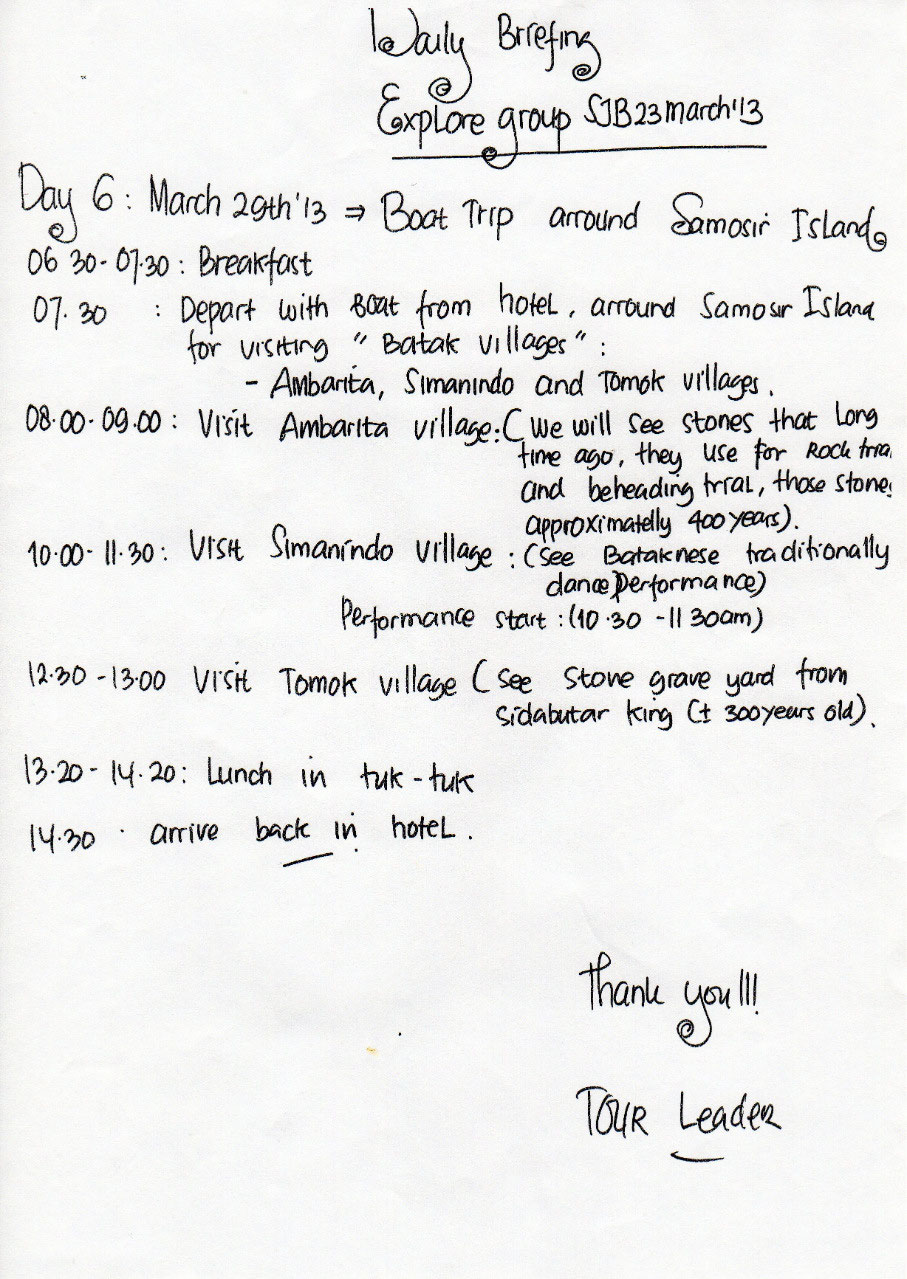 Daily Briefing
Explore group SJB23march'13
Day 6: March 29th'13 ⇒ Boat Trip arround Samosir Island
06 30-07.30: Breakfast
07.30 : Depart with Boat from hotel, arround Samosir Island
for visiting "Batak villages":
- Ambarita, Simanindo and Tomok villages.
08.00-09.00: Visit Ambarita village: (We will see stones that long
time ago, they use for Rock tria
and beheading trial, those stone
approximatelly 400 years).
10.00-11.30: Visit Simanindo village: (see Bataknese traditionally
dance performance)
Performance start: (10.30 - 11 30am)
12.30 -13.00 Visit Tomok village (see stone grave yard from
sidabutar king (± 300 years old).
13.20-14.20: Lunch in tuk-tuk
14.30 . arrive back in hotel.
Thank you!!!
Tour Leader